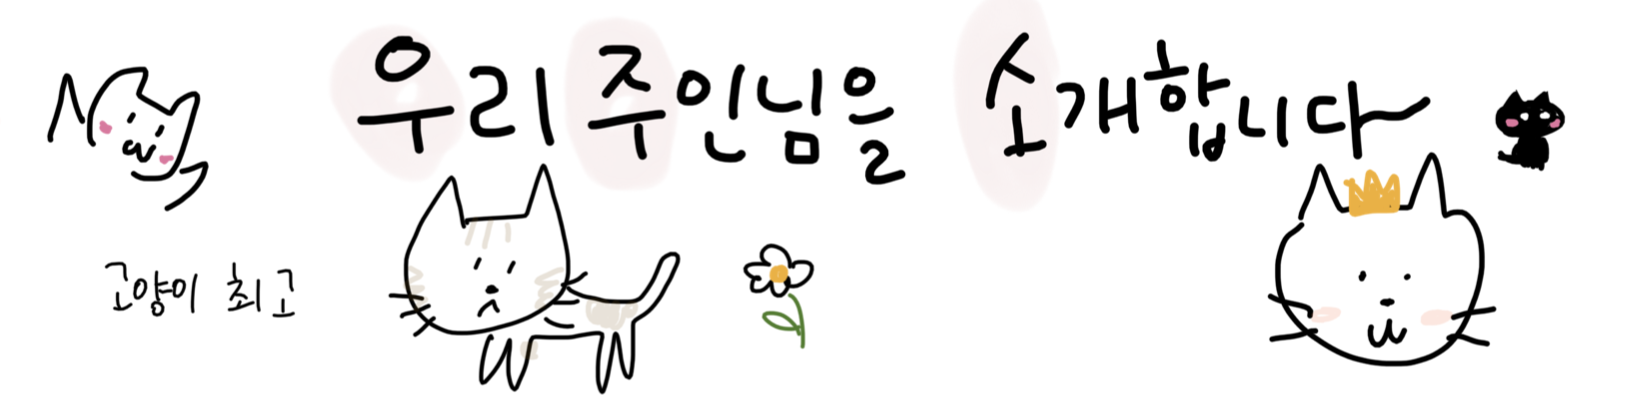 우리 주인님을 소개합니다
고양이 최고